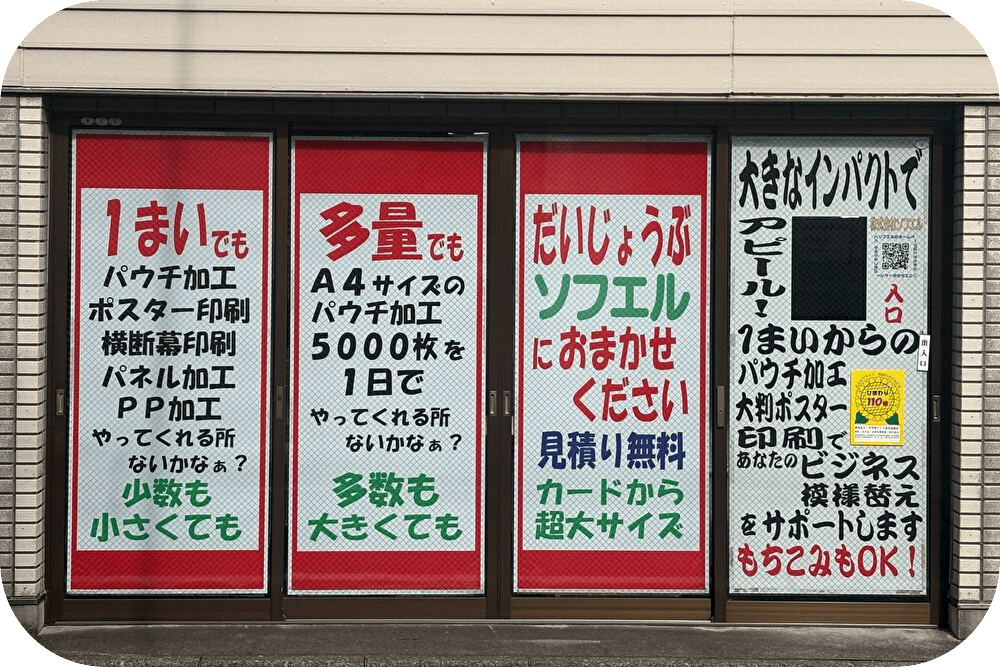 1まいでも
パウチ加工
ポスター印刷
横断幕印刷
パネル加工
PP加工
やってくれる所
ないかなぁ?
少数も
小さくても
多量でも
A4サイズの
パウチ加工
5000枚を
1日で
やってくれる所
ないかなぁ?
多数も
大きくても
だいじょうぶ
ソフエル
におまかせ
ください
見積り無料
カードから
超大サイズ
大きなインパクトで
アピール!
株式会社ソフエル
入口
1まいからの
出入口
パウチ加工
大判ポスター
印刷で
ひまわり
110番
あなたのビジネス
模様替え
をサポートします
もちこみもOK!